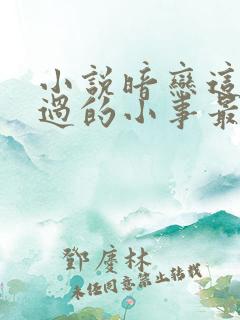 小說暗戀這
過的小事最
鄧慶林
未經同意禁止轉載